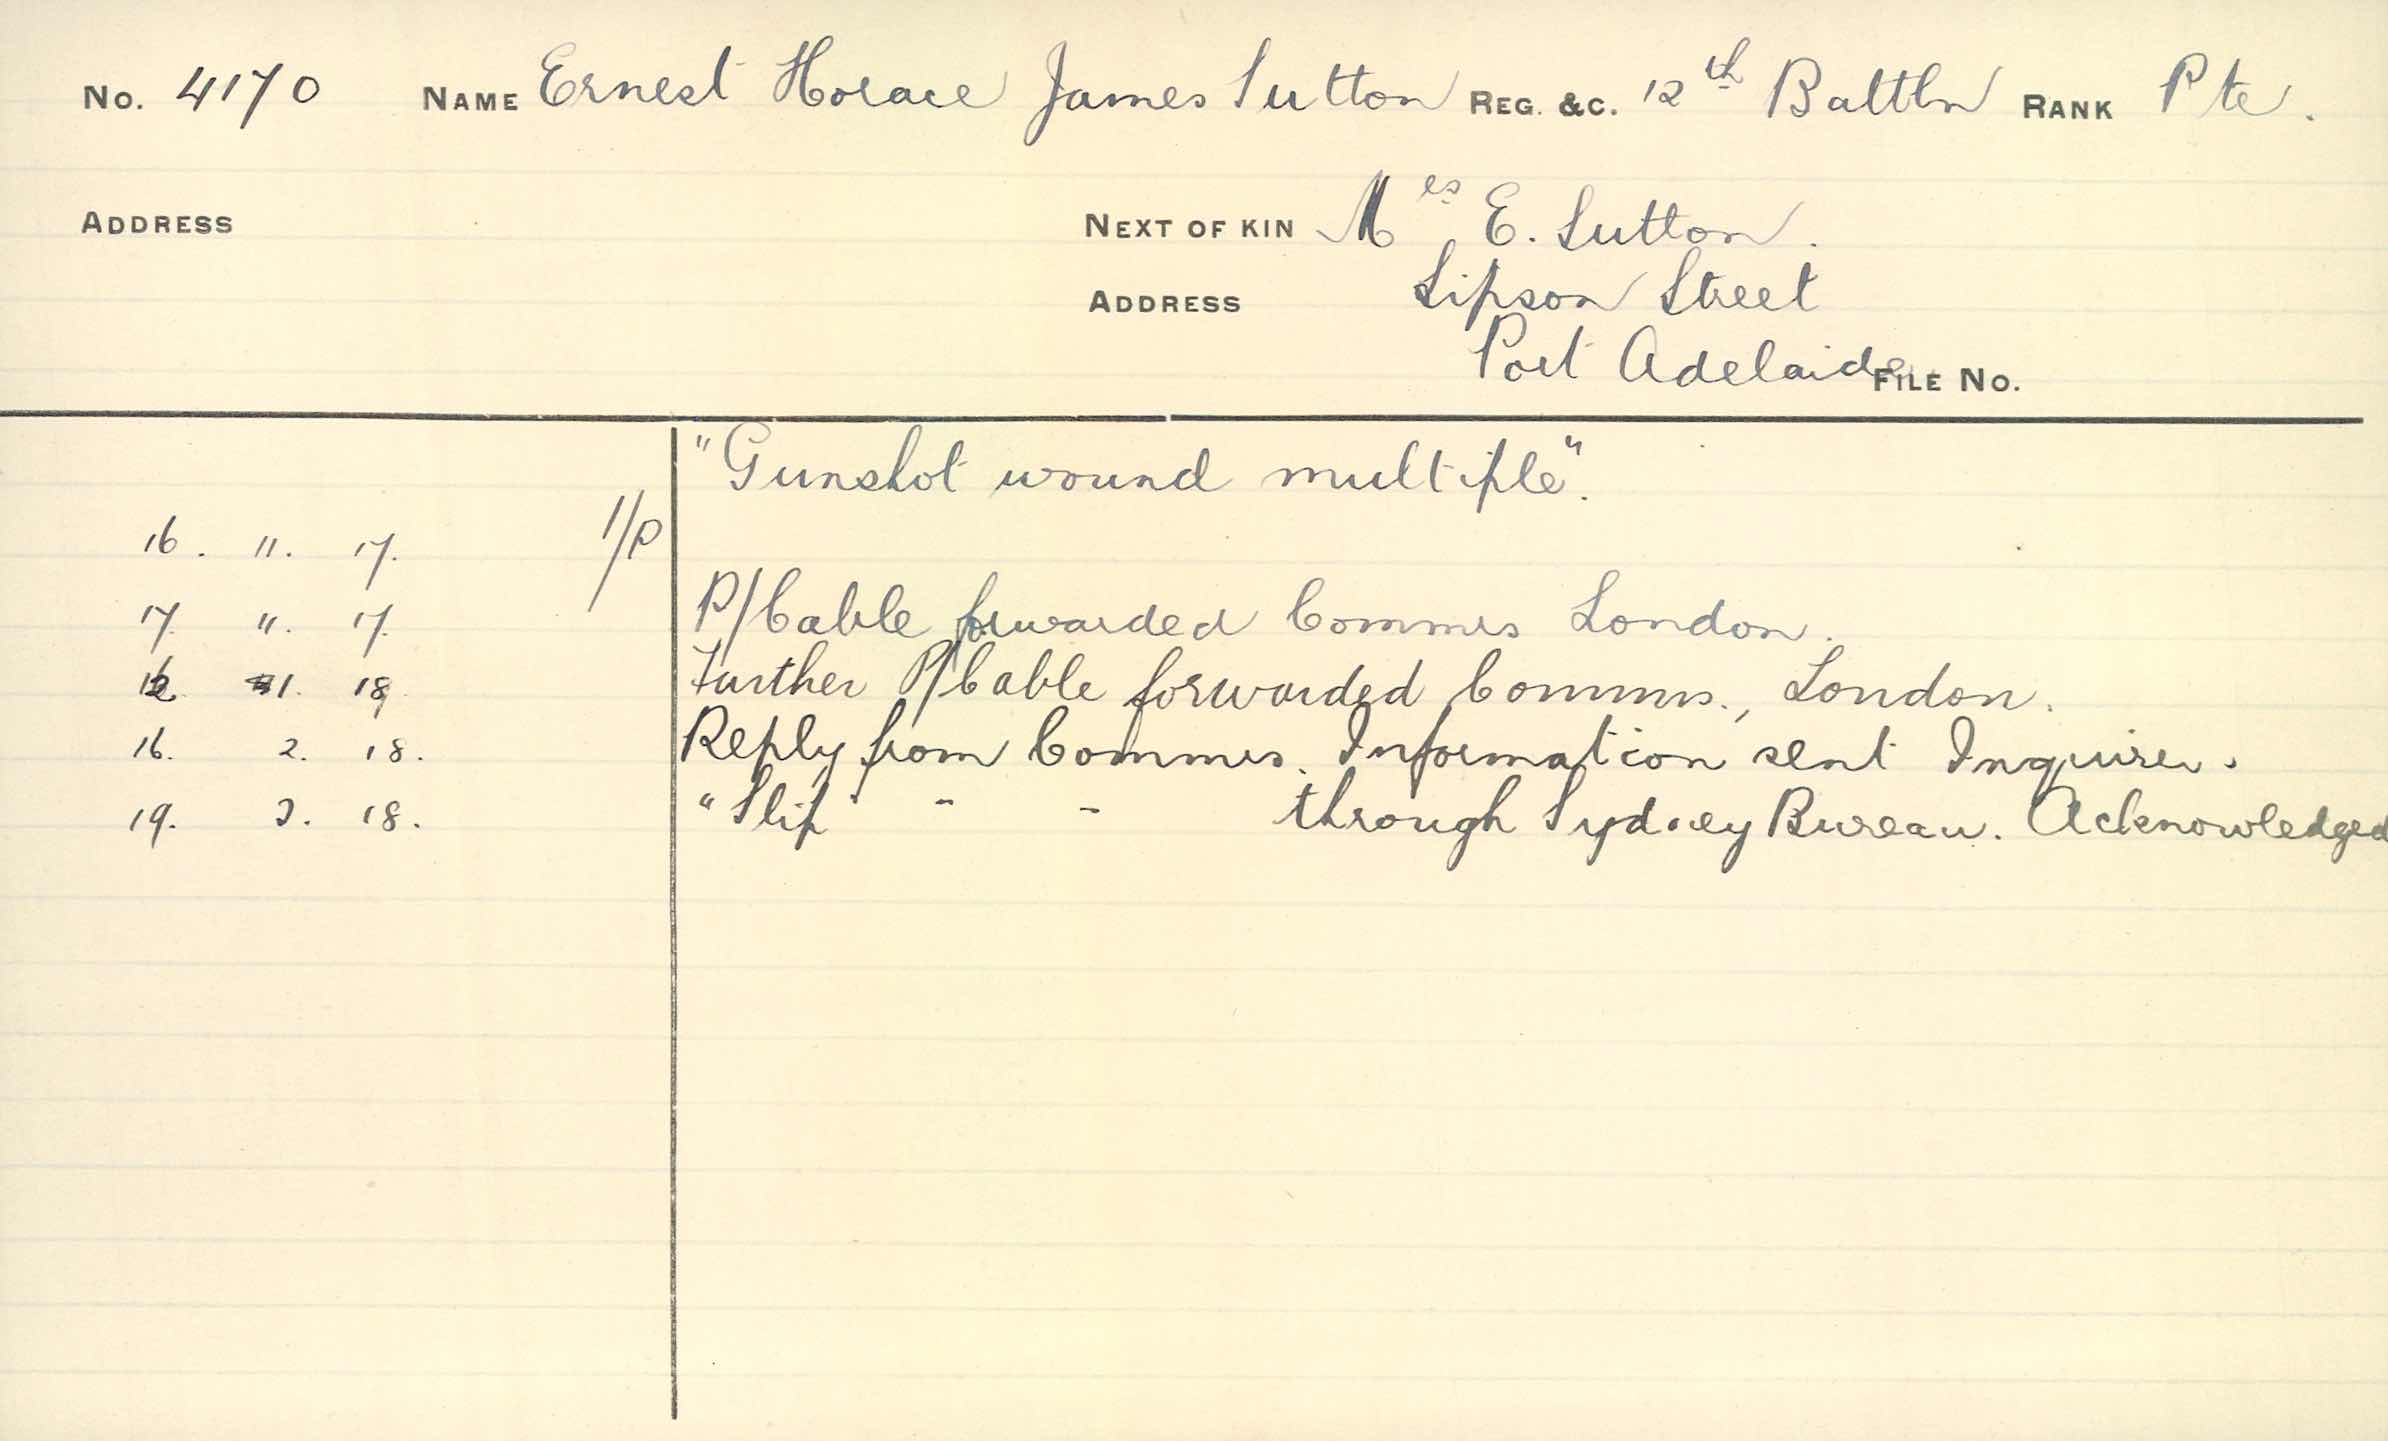 No. 4170 NAME Ernest Horace James Sutton REG. &C. 12th Battln RANK Pte.
ADDRESS NEXT OF KIN Mrs E. Sutton.
ADDRESS Lipson Street
Port Adelaide FILE No.
"Gunshot wound multiple".
16. 11. 17. 1/P
17. 11. 17. P/Cable forwarded Commrs London.
12. 1. 18. Further P/Cable forwarded Commrs., London.
16. 2. 18. Reply from Commrs. Information sent Inquirer.
19. 3. 18. "Slip" " " through Sydney Bureau. Acknowledged